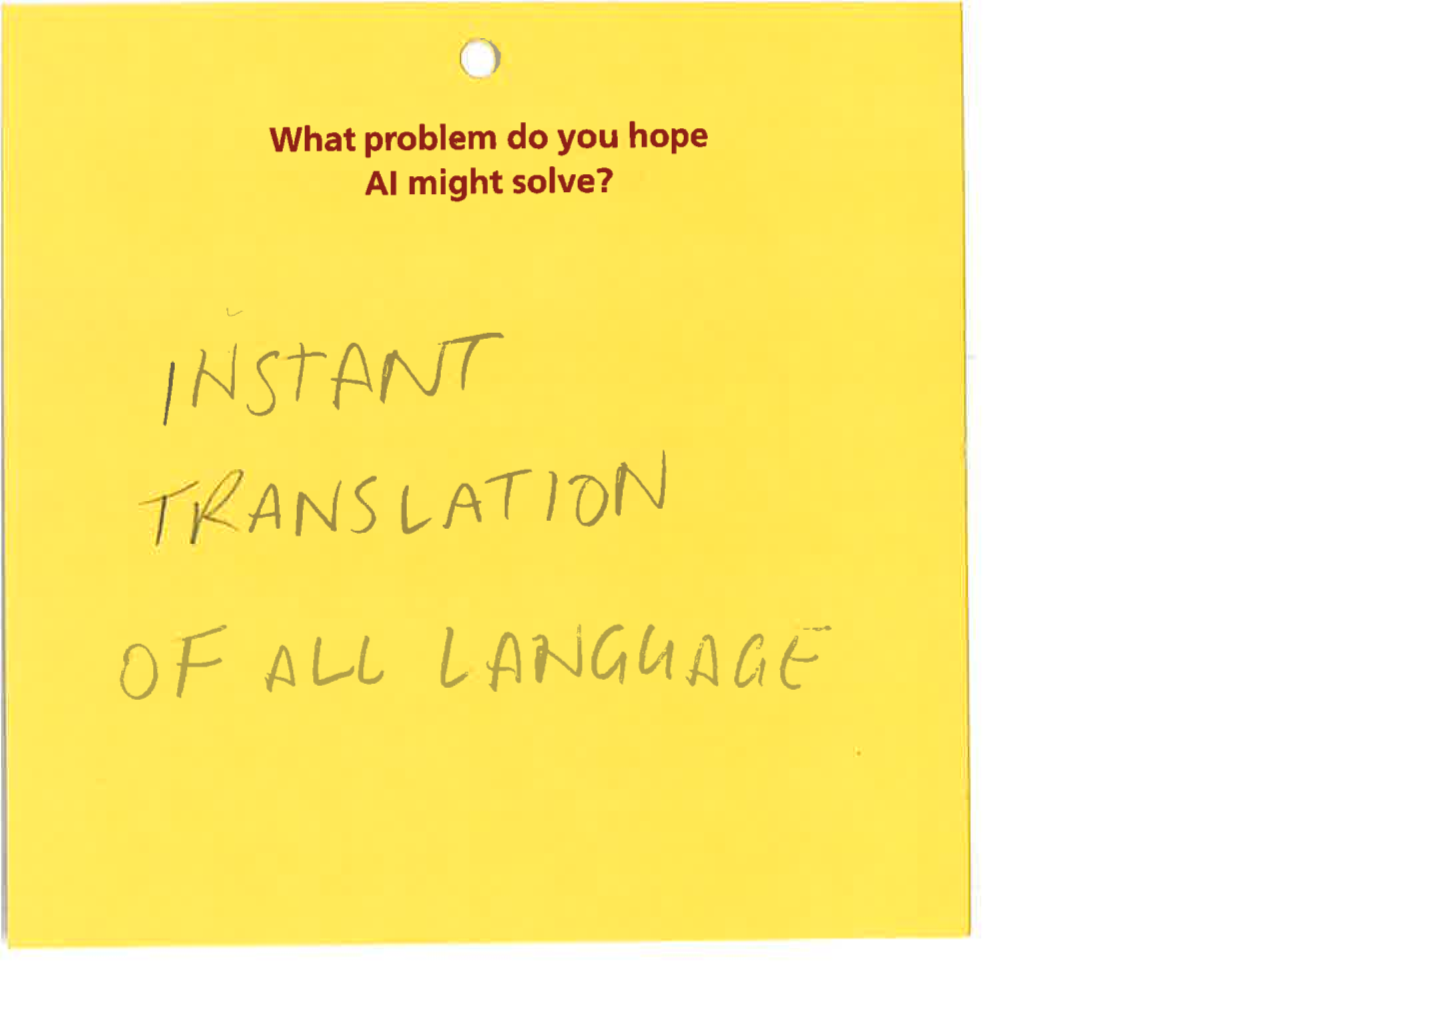 What problem do you hope
AI might solve?
INSTANT
TRANSLATION
OF ALL LANGUAGE